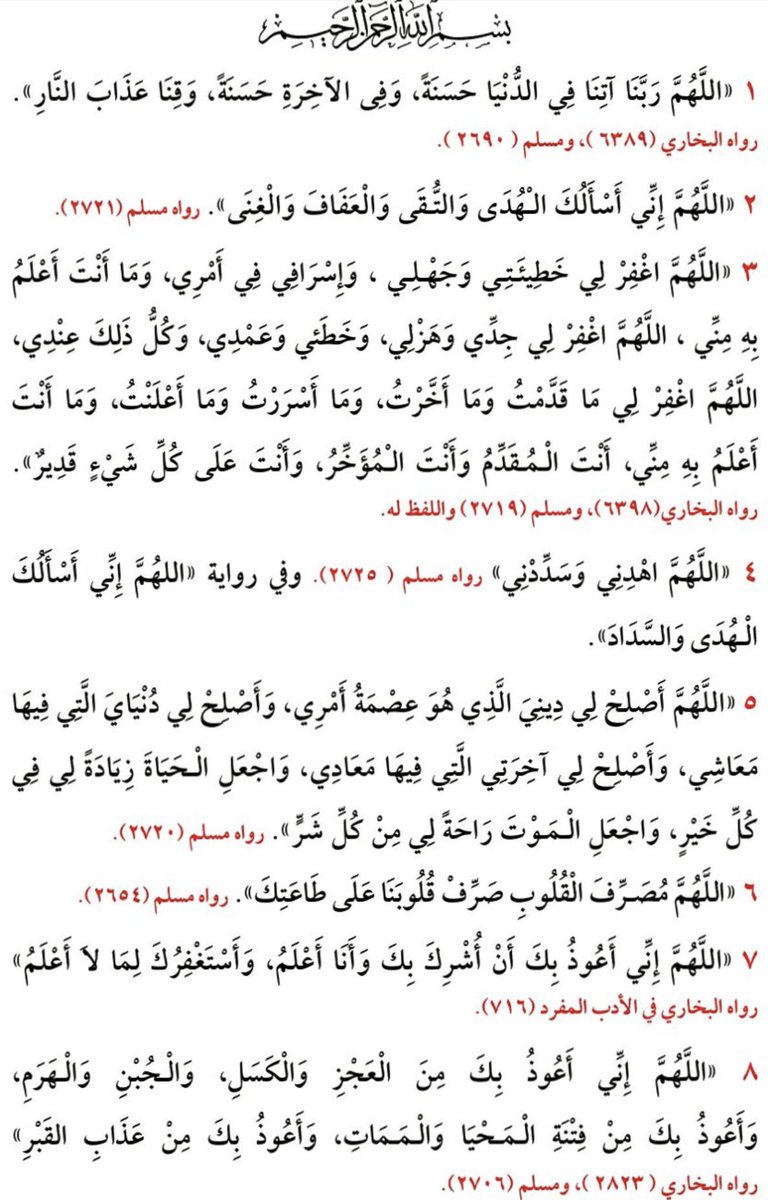 بِسْمِ اللَّهِ الرَّحْمَنِ الرَّحِيمِ
١ «اللَّهُمَّ رَبَّنَا آتِنَا فِي الدُّنْيَا حَسَنَةً، وَفِى الآخِرَةِ حَسَنَةً، وَقِنَا عَذَابَ النَّارِ».
رواه البخاري (٦٣٨٩ )، ومسلم ( ٢٦٩٠ ).
٢ «اللَّهُمَّ إِنِّي أَسْأَلُكَ الْهُدَى وَالتُّقَى وَالْعَفَافَ وَالْغِنَى». رواه مسلم (٢٧٢١).
٣ «اللَّهُمَّ اغْفِرْ لِي خَطِيئَتِي وَجَهْلِي ، وَإِسْرَافِي فِي أَمْرِي، وَمَا أَنْتَ أَعْلَمُ
بِهِ مِنِّي ، اللَّهُمَّ اغْفِرْ لِي جِدِّي وَهَزْلِي، وَخَطَئِي وَعَمْدِي، وَكُلُّ ذَلِكَ عِنْدِي،
اللَّهُمَّ اغْفِرْ لِي مَا قَدَّمْتُ وَمَا أَخَّرْتُ، وَمَا أَسْرَرْتُ وَمَا أَعْلَنْتُ، وَمَا أَنْتَ
أَعْلَمُ بِهِ مِنِّي، أَنْتَ الْمُقَدِّمُ وَأَنْتَ الْمُؤَخِّرُ، وَأَنْتَ عَلَى كُلِّ شَيْءٍ قَدِيرٌ».
رواه البخاري(٦٣٩٨)، ومسلم (٢٧١٩) واللفظ له.
٤ «اللَّهُمَّ اهْدِنِي وَسَدِّدْنِي» رواه مسلم ( ٢٧٢٥). وفي رواية «اللهُمَّ إِنِّي أَسْأَلُكَ
الْهُدَى وَالسَّدَادَ».
٥ «اللَّهُمَّ أَصْلِحْ لِي دِينِيَ الَّذِي هُوَ عِصْمَةُ أَمْرِي، وَأَصْلِحْ لِي دُنْيَايَ الَّتِي فِيهَا
مَعَاشِي، وَأَصْلِحْ لِي آخِرَتِي الَّتِي فِيهَا مَعَادِي، وَاجْعَلِ الْحَيَاةَ زِيَادَةً لِي فِي
كُلِّ خَيْرٍ، وَاجْعَلِ الْمَوْتَ رَاحَةً لِي مِنْ كُلِّ شَرٍّ». رواه مسلم (٢٧٢٠).
٦ «اللَّهُمَّ مُصَرِّفَ الْقُلُوبِ صَرِّفْ قُلُوبَنَا عَلَى طَاعَتِكَ». رواه مسلم (٢٦٥٤).
٧ «اللَّهُمَّ إِنِّي أَعُوذُ بِكَ أَنْ أُشْرِكَ بِكَ وَأَنَا أَعْلَمُ، وَأَسْتَغْفِرُكَ لِمَا لاَ أَعْلَمُ»
رواه البخاري في الأدب المفرد (٧١٦).
٨ «اللَّهُمَّ إِنِّي أَعُوذُ بِكَ مِنَ الْعَجْزِ وَالْكَسَلِ، وَالْجُبْنِ وَالْهَرَمِ،
وَأَعُوذُ بِكَ مِنْ فِتْنَةِ الْمَحْيَا وَالْمَمَاتِ، وَأَعُوذُ بِكَ مِنْ عَذَابِ القَبْرِ»
رواه البخاري ( ٢٨٢٣ )، ومسلم (٢٧٠٦).